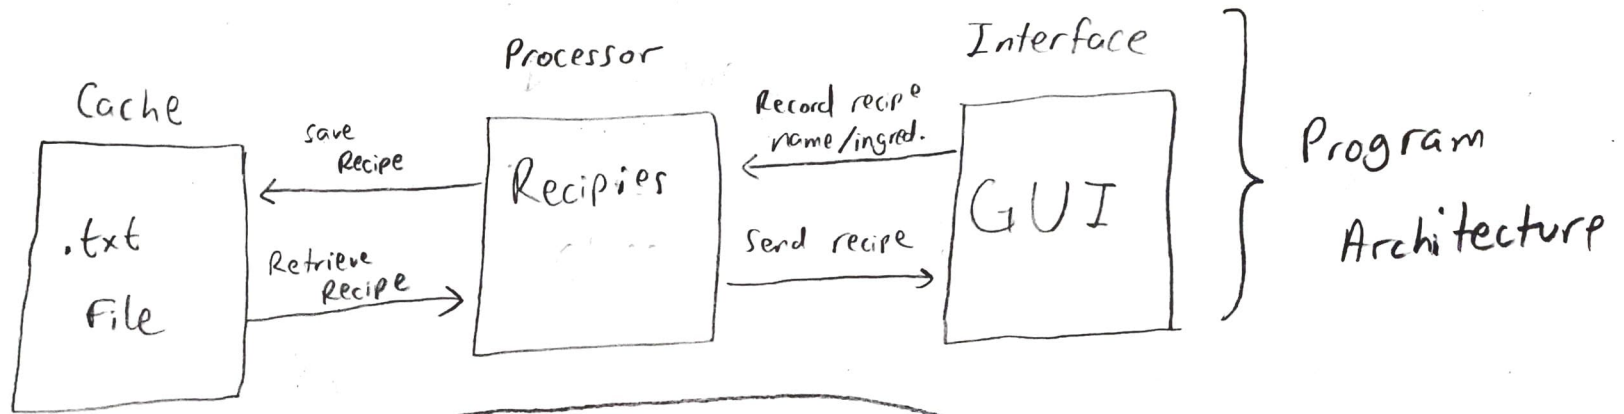 Cache
.txt
File
save
Recipe
Retrieve
Recipe
Processor
Recipies
Record recipe
name/ingred.
Send recipe
Interface
GUI
Program
Architecture